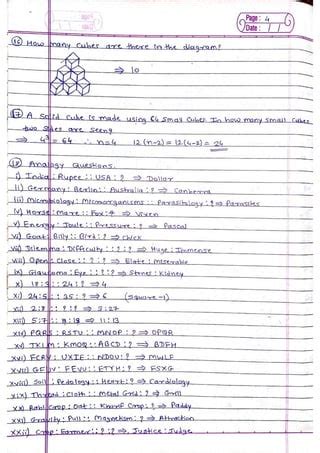 Page: 4
Date: / /
16) How many cubes are there in the diagram?
⇒ 10
17) A solid cube is made using 64 small cubes. In how many small cubes
two sides are seen?
⇒ 4³ = 64 ∴ n=4 12(n-2) = 12(4-2) = 24
18) Analogy Questions.
i) India : Rupee :: USA : ? ⇒ Dollar
ii) Germany : Berlin :: Australia : ? ⇒ Canberra
iii) Microbiology : Microorganisms :: Parasitology : ? ⇒ Parasites
iv) Horse : Mare :: Fox : ? ⇒ Vixen
v) Energy : Joule :: Pressure : ? ⇒ Pascal
vi) Goat : Billy :: Bird : ? ⇒ Chick
vii) Dilemma : Difficulty :: ? : ? ⇒ Huge : Immense
viii) Open : Close :: ? : ? ⇒ Elate : Miserable
ix) Glaucoma : Eye :: ? : ? ⇒ Stones : Kidney
x) 18 : 3 :: 24 : ? ⇒ 4
xi) 24 : 5 :: 35 : ? ⇒ 6 (square-1)
xii) 2 : 8 :: ? : ? ⇒ 3 : 27
xiii) 5 : 7 :: ? : 13 ⇒ 11 : 13
xiv) PQRS : RSTU :: MNOP : ? ⇒ OPQR
xv) TKIM : KMOQ :: ABCD : ? ⇒ BDFH
xvi) : UXIE :: NDDU : ? ⇒ MWLF
xvii) : FEVU :: ETYH : ? ⇒ FSXG
xviii) Soil : Pedology :: Heart : ? ⇒ Cardiology
xix) Thread : Cloth :: Metal Grid : ? ⇒ Grill
xx) Rabi Crop : Oat :: Kharif Crop : ? ⇒ Paddy
xxi) Gravity : Pull :: Magnetism : ? ⇒ Attraction
xxii) Crop : Farmer :: ? : ? ⇒ Justice : Judge